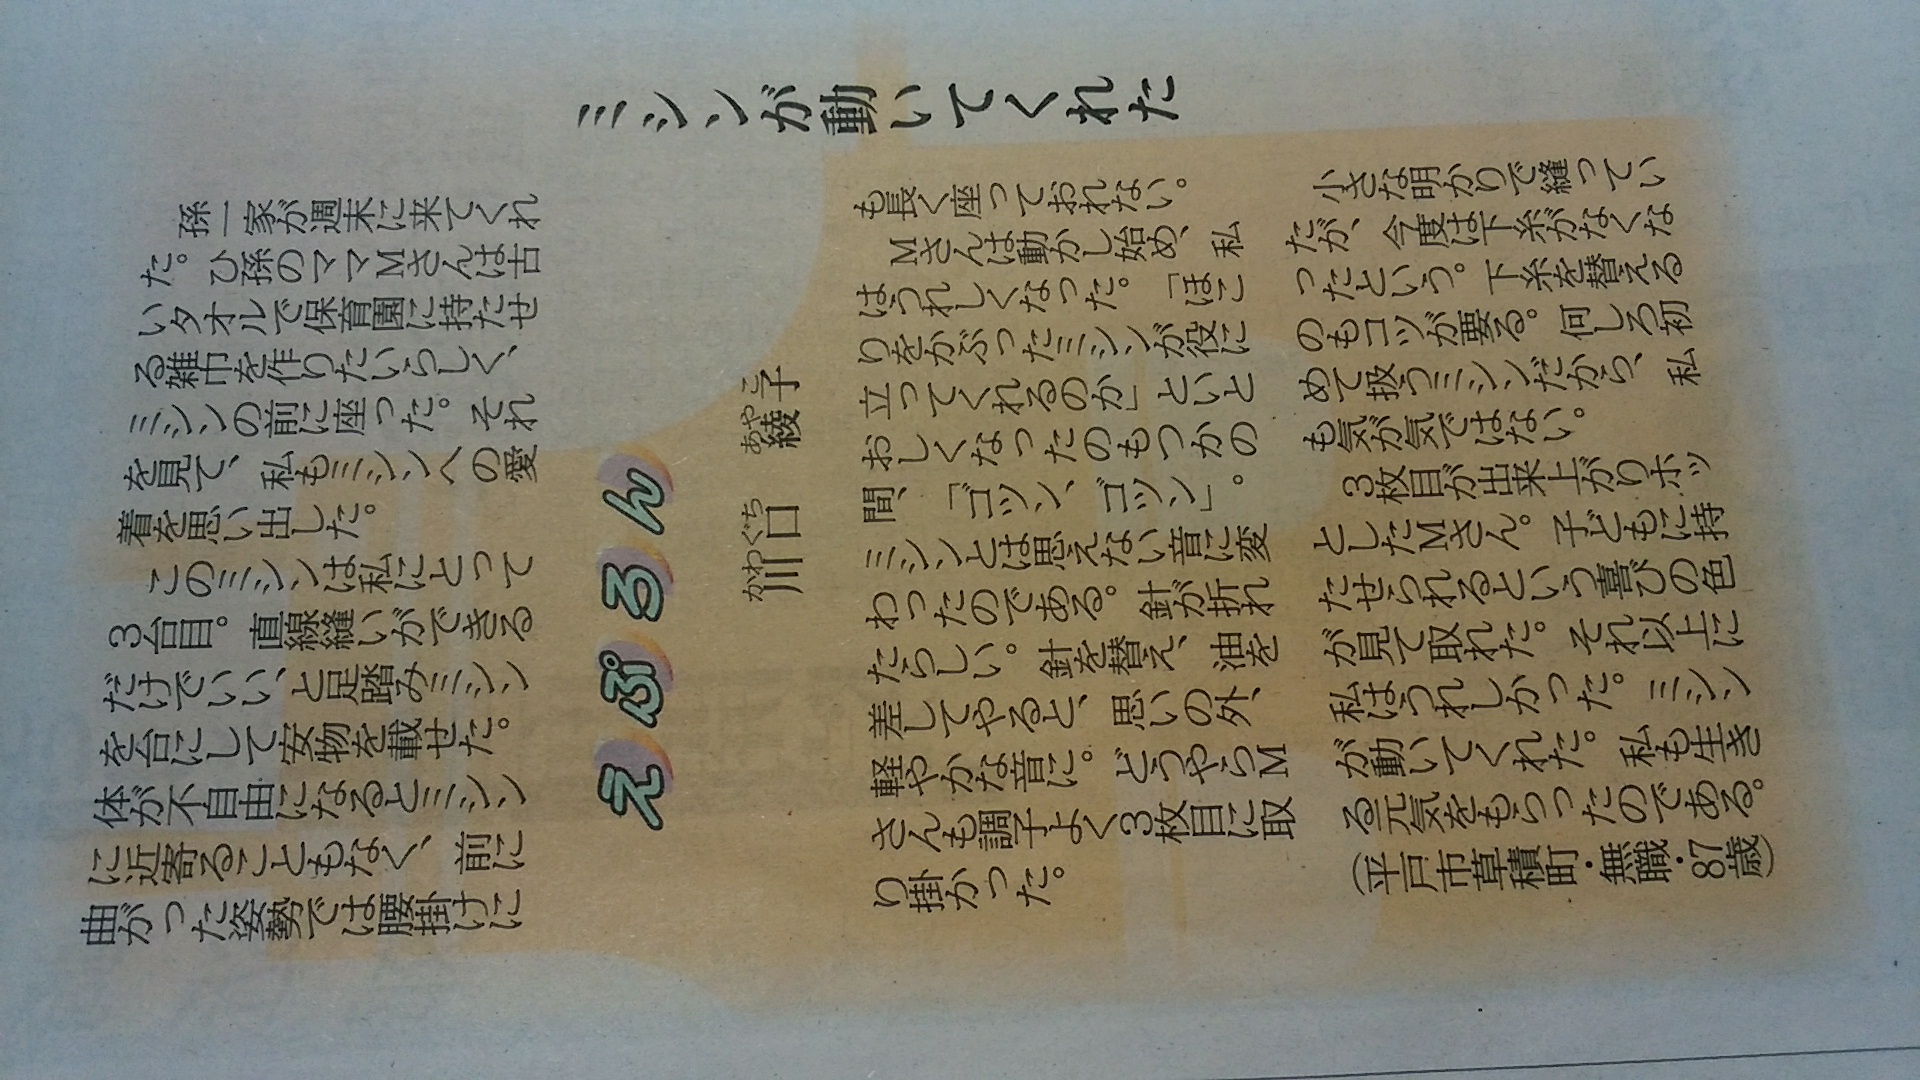 ミシンが動いてくれた
えぷろん
川口 綾子
かわぐち あやこ
孫一家が週末に来てくれ
た。ひ孫のママMさんは古
いタオルで保育園に持たせ
る雑巾を作りたいらしく、
ミシンの前に座った。それ
を見て、私もミシンへの愛
着を思い出した。
このミシンは私にとって
3台目。直線縫いができる
だけでいい、と足踏みミシン
を台にして安物を載せた。
体が不自由になるとミシン
に近寄ることもなく、前に
曲がった姿勢では腰掛けに
も長く座っておれない。
Mさんは動かし始め、私
はうれしくなった。「ほこ
りをかぶったミシンが役に
立ってくれるのか」といと
おしくなったのもつかの
間、「ゴツン、ゴツン」。
ミシンとは思えない音に変
わったのである。針が折れ
たらしい。針を替え、油を
差してやると、思いの外、
軽やかな音に。どうやらM
さんも調子よく3枚目に取
り掛かった。
小さな明かりで縫ってい
たが、今度は下糸がなくな
ったという。下糸を替える
のもコツが要る。何しろ初
めて扱うミシンだから、私
も気が気ではない。
3枚目が出来上がりホッ
としたMさん。子どもに持
たせられるという喜びの色
が見て取れた。それ以上に
私はうれしかった。ミシン
が動いてくれた。私も生き
る元気をもらったのである。
（平戸市草積町・無職・87歳）